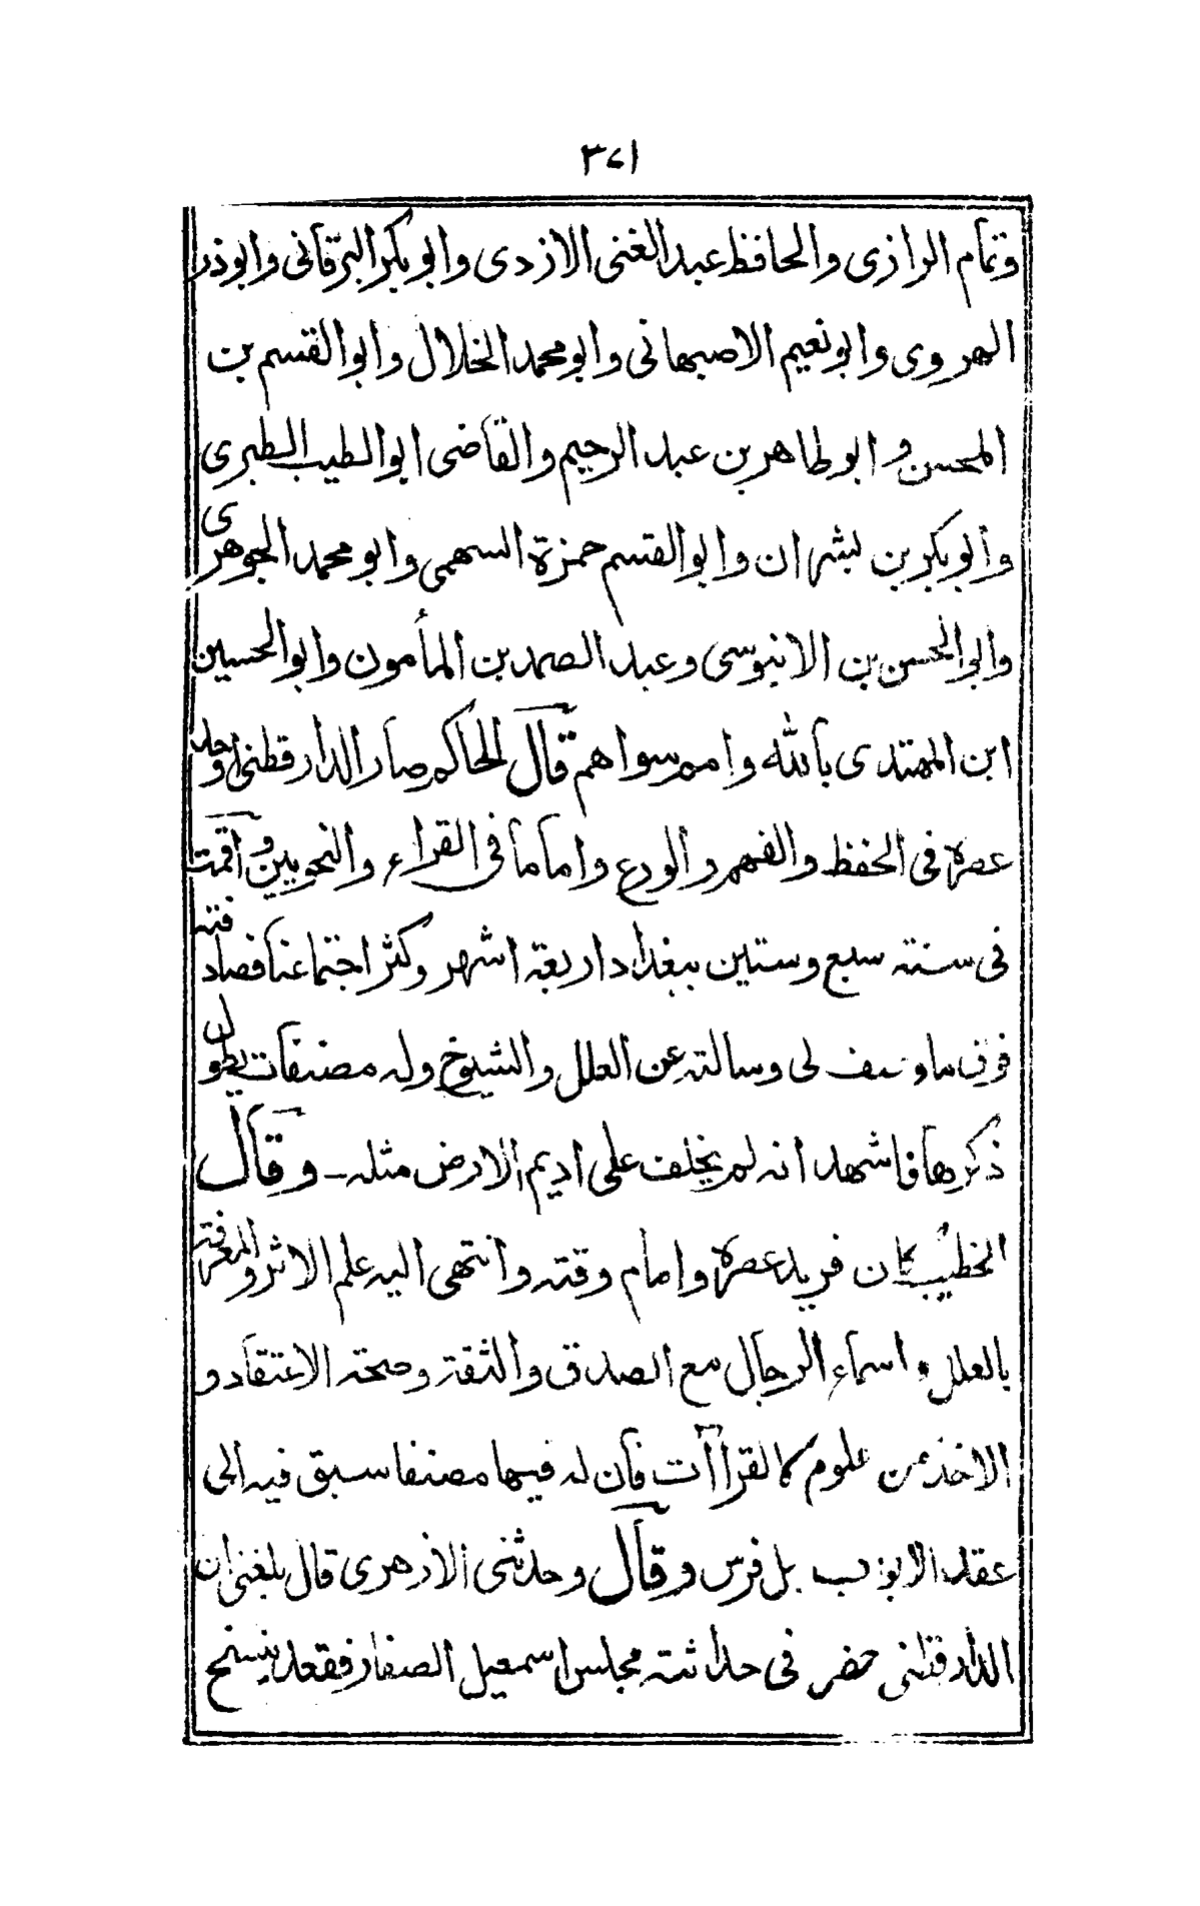 ٣٧١
وتمام الرازى والحافظ عبد الغنى الازدى وابو بكر البرقانى وابوذر
الهروى وابو نعيم الاصبهانى وابو محمد الخلال وابو القسم بن
المحسن و ابو طاهر بن عبد الرحيم والقاضى ابو الطيب الطبرى
وابو بكر بن بشران وابو القسم حمزة السهمى وابو محمد الجوهرى
وابو الحسن بن الانبوسى وعبد الصمد بن المأمون وابو الحسين
ابن المهتدى بالله وامم سواهم قال الحاكم صار الدارقطنى اوحد
عصره فى الحفظ والفهم والورع واماما فى القراء والنحويين و اقمت
فى سنة سبع وستين ببغداد اربعة اشهر وكثر اجتماعنا فصادفته
فوق ما وصف لى وسالته عن العلل والشيوخ وله مصنفات يطول
ذكرها فاشهد انه لم يخلف على اديم الارض مثله ـ وقال
الخطيب كان فريد عصره وامام وقته وانتهى اليه علم الاثر والمعرفة
بالعلل و اسماء الرجال مع الصدق والثقة وصحة الاعتقاد و
الاخذ من علوم كالقراأت فان له فيها مصنفا سبق فيه الى
عقد الابواب بل فرس وقال وحدثنى الازهرى قال بلغنى ان
الدارقطنى حضر فى حداثته مجلس اسمعيل الصفار فقعد ينسخ